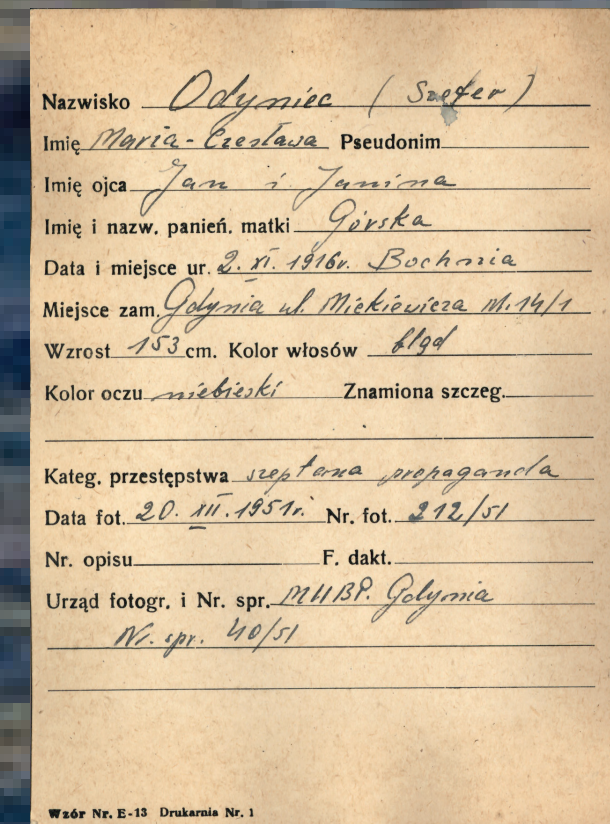 Nazwisko Odyniec (Szefer)
Imię Maria-Czesława Pseudonim
Imię ojca Jan i Janina
Imię i nazw. panień. matki Górska
Data i miejsce ur. 2. XI. 1916r. Bochnia
Miejsce zam. Gdynia ul. Mickiewicza M. 14/1
Wzrost 153 cm. Kolor włosów bląd
Kolor oczu niebieski Znamiona szczeg.
Kateg. przestępstwa szeptana propaganda
Data fot. 20. XII. 1951r. Nr. fot. 212/51
Nr. opisu F. dakt.
Urząd fotogr. i Nr. spr. MUBP. Gdynia
Nr. spr. 40/51
Wzór Nr. E-13 Drukarnia Nr. 1